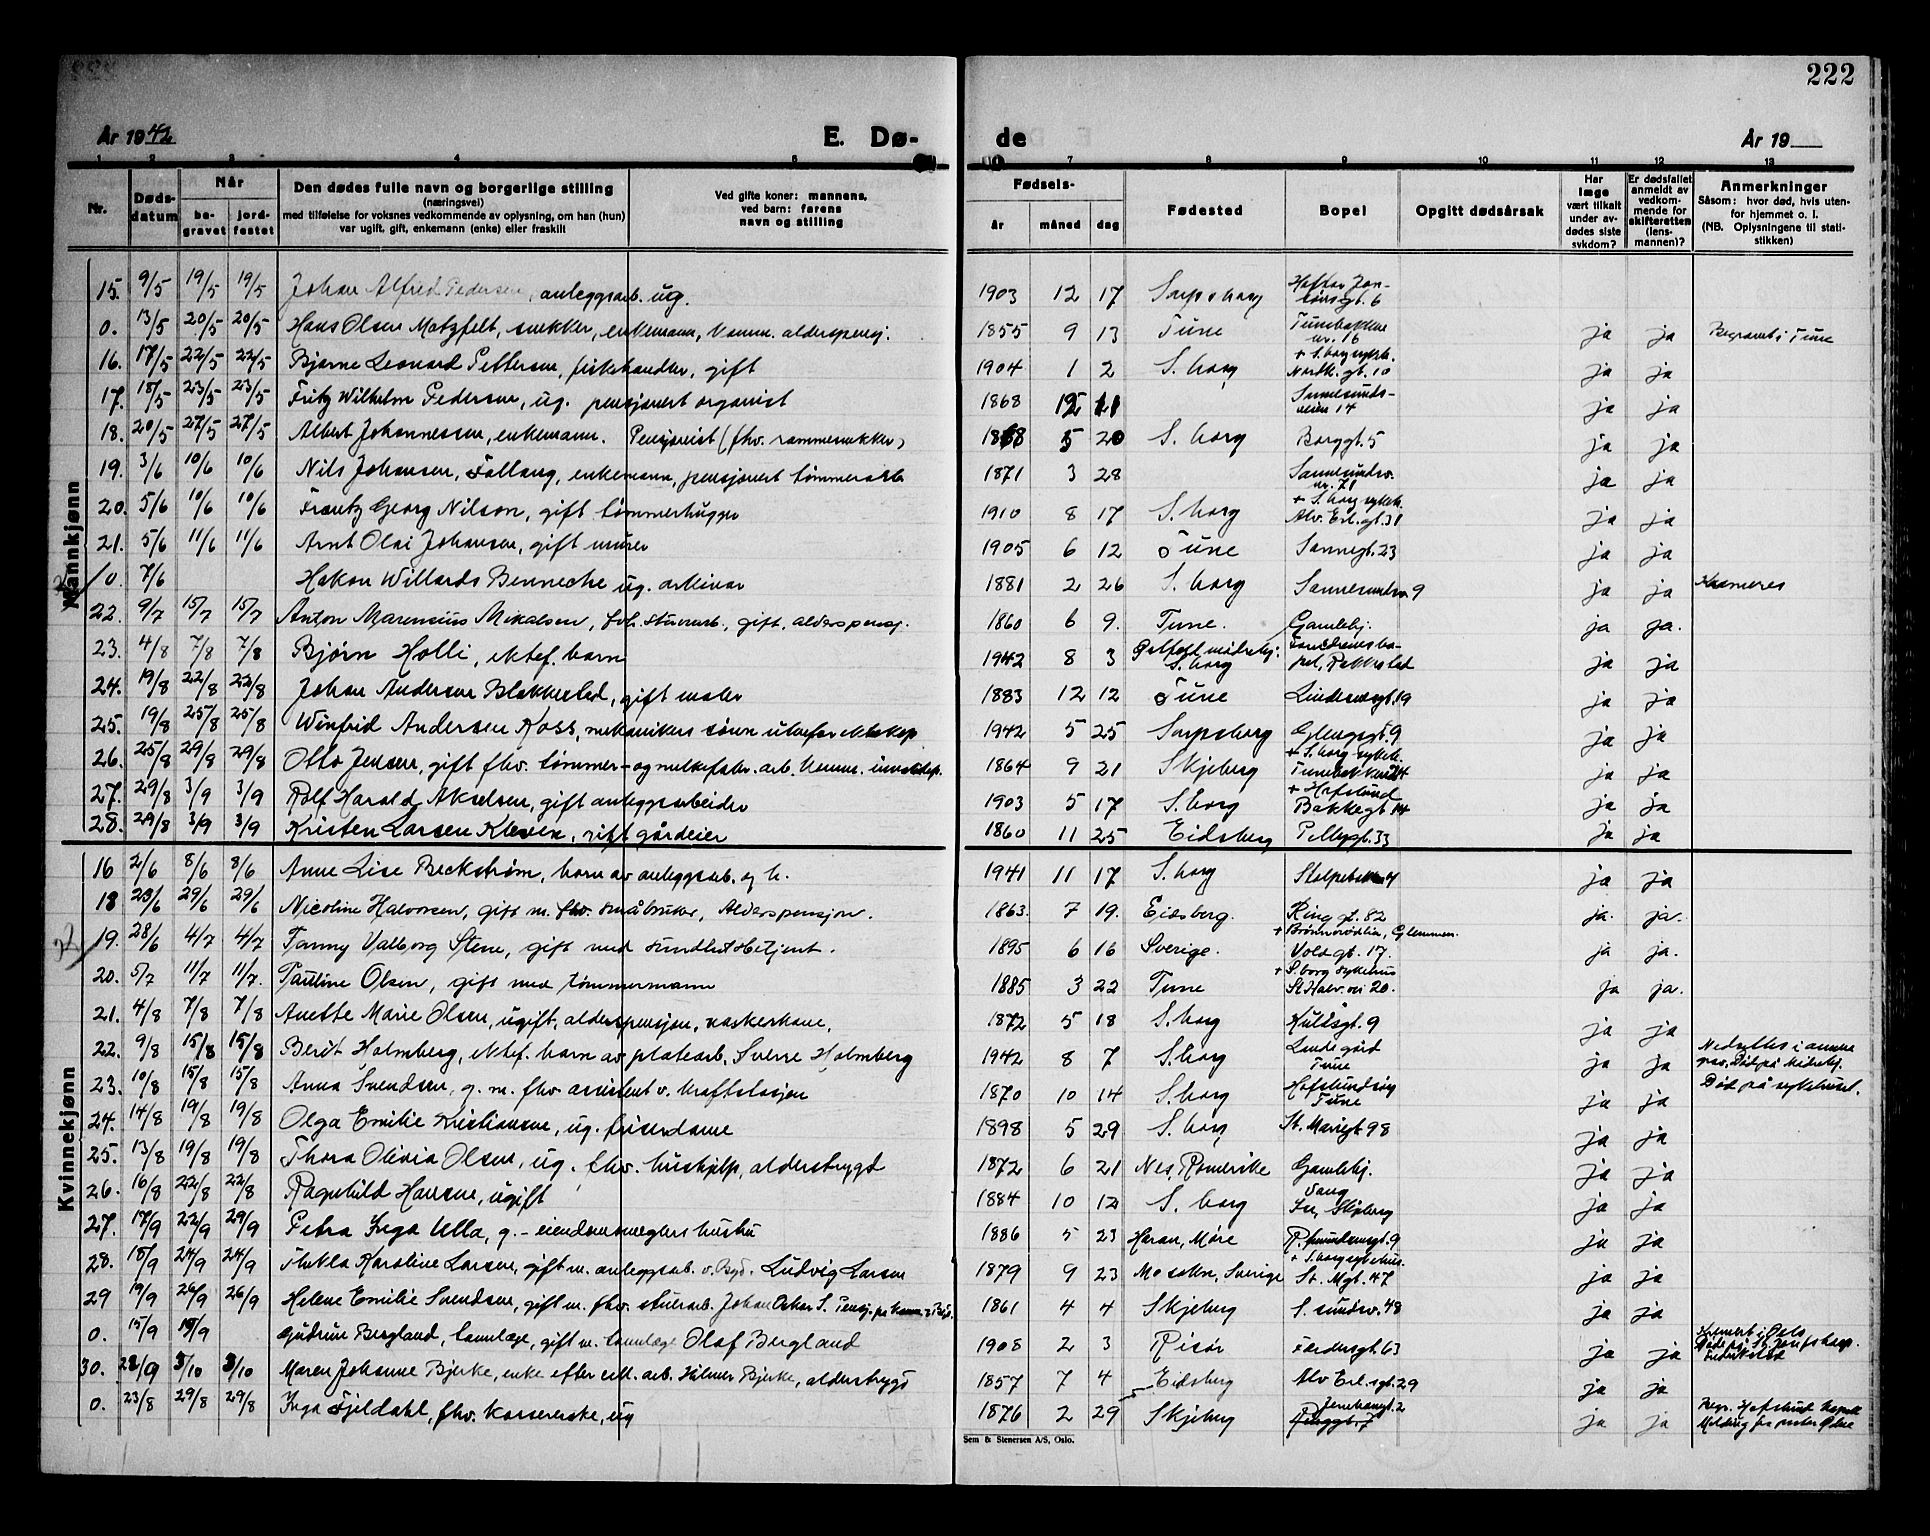 222
År 1942 E. Dø- de År 19
1 2 3 4 5 7 8 9 10 11 12 13
Nr. Døds-datum Når be-gravet jord-festet Den dødes fulle navn og borgerlige stilling (næringsvei) med tilføielse for voksnes vedkommende av oplysning, om han (hun) var ugift, gift, enkemann (enke) eller fraskilt Ved gifte koner: mannens, ved barn: farens navn og stilling Fødsels- år måned dag Fødested Bopel Opgitt dødsårsak Har læge vært tilkalt under av-dødes siste sykdom? Er dødsfallet anmeldt av vedkom-mende for skifteretten (lens-mannen)? Anmerkninger Såsom: hvor død, hvis uten-for hjemmet o. l. (NB. Oplysningene til stati-stikken)
Mannkjønn
15. 9/5 19/5 19/5 Johan Alfred Pedersen, anleggsarb. ug. 1903 12 17 Sarpsborg
0. 13/5 20/5 20/5 Hans Olsen Matzfelt, snekker, enkemann, komm. alderspensj. 1855 9 13 Tune Tunebakken nr. 16 ja ja Begravet i Tune
16. 17/5 22/5 22/5 Bjarne Leonard Pettersen, fiskehandler, gift 1904 1 2 S.borg + S.borg sykeh. Nordk. gt. 10 ja ja
17. 18/5 23/5 23/5 Fritz Wilhelm Pedersen, ug. pensjonert organist 1868 Sannesunds-veien 14 ja ja
18. 20/5 27/5 27/5 Albert Johannessen, enkemann. Pensjonist (fhv. rammesnekker) 5 20 S.borg Borggt. 5 ja ja
19. 3/6 10/6 10/6 Nils Johansen, Fallang, enkemann, pensjonert tømmerarb 1871 3 28 Sannesundsv. nr. 71 ja ja
20. 5/6 10/6 10/6 Frantz Georg Nilson, gift tømmerhugger 1910 8 17 S.borg + S.borg sykeh. Alv. Erl. gt. 31 ja ja
21. 5/6 11/6 11/6 Arnt Olai Johansen, gift murer 1905 6 12 Tune Sannegt. 23 ja ja
0. 7/6 Hakon Willards Bennecke ug. arkivar 1881 2 26 S.borg Sannesundsv 9 ja ja Krameres
22. 9/7 15/7 15/7 Anton Marensius Mikalsen, fhv. stuerarb., gift, alderspensj. 1860 6 9. Tune. Gamlehj. ja ja.
23. 4/8 7/8 7/8 Bjørn Holli, ektef. barn 1942 8 3 Østfold mødrehj. S.borg Rakkestad ja ja
24. 19/8 22/8 22/8 Johan Andersen Blakkestad, gift maler 1883 12 12 Tune Lindemsgt. 19 ja ja
25. 19/8 25/8 25/8 Winfrid Andersen Ross, mekanikers sønn utenfor ekteskap 1942 5 25 Sarpsborg Glengsgt. 9 ja ja
26. 25/8 29/8 29/8 Otto Jensen, gift fhv. tømmer- og melkefabr. arb. komm. 1864 9 21 Skjeberg + S.borg sykeh. ja ja
27. 29/8 3/9 3/9 Rolf Harald Akselsen, gift anleggsarbeider 1903 5 17 S.borg + Hafslund Bakkegt 14 ja ja
28. 29/8 3/9 3/9 Kristen Larsen Kleven, gift gårdeier 1860 11 25 Eidsberg Pellygt. 33 ja ja
Kvinnekjønn
16 2/6 8/6 8/6 Anne Lise Beckstrøm, barn av anleggsarb. og h. 1941 11 17 S.borg ja ja
18 23/6 29/6 29/6 Nicoline Halvorsen, gift m. fhv. småbruker, Alderspensjon. 1863. 7 19. Eidsberg. Ring gt. 82 ja. ja.
19. 28/6 4/7 4/7 Fanny Valborg Stene, gift med sundhetsbetjent. 1895 6 16 Sverige. + Brønnerødlia, Glemmen. Vold gt. 17. ja ja.
20. 5/7 11/7 11/7. Pauline Olsen, gift med tømmermann 1885 3 22 Tune + S.borg sykehus St.Halv. vei 20. ja ja.
21. 4/8 7/8 7/8 Anette Marie Olsen, ugift, alderspensjon, vaskerkone, 1872 5 18 S.borg Kuldsgt. 9 ja ja
22. 9/8 15/8 15/8 Berit Holmberg, ektef. barn av platearb. Sverre Holmberg 1942 8 7 S.borg Lande gård Tune ja ja Nedsettes i annen grav, Død på Mødrehj.
23. 10/8 15/8 15/8 Anna Svendsen, g. m. fhv. assistent v. kraftstasjon 1870 10 14 S.borg Hafslundsøy Tune ja ja Død på sykehuset.
24. 14/8 19/8 19/8 Olga Emilie Kristiansen, ug. frisørdame 1898 5 29 S.borg St. Mariegt. 98 ja ja
25. 13/8 19/8 19/8 Thora Olivia Olsen, ug. fhv. hushjelp, alderstrygd 1872 6 21 Nes, Romerike Gamlehj. ja ja
26. 16/8 22/8 22/8 Ragnhild Hansen, ugift 1884 10 12 S.borg Skjeberg ja ja
27. 17/9 22/9 29/9 Petra Inga Ulla, g. - eiendomsmeglers hustru 1886 5 23 Haram, Møre R. Amundsensgt. 9 ja ja
28. 18/9 24/9 24/9 Thekla Karoline Larsen, gift m. anleggsarb. v. Byd. Ludvig Larsen 1879 9 23 Sverige + S.borg sykehus. St. Mgt. 47 ja ja
29 19/9 26/9 26/9 Helene Emilie Svendsen, gift m. fhv. stuerarb. Johan Oskar S. Pensj. fra 1861 4 4 Skjeberg S.sundsv. 48 ja ja
0. 15/9 19/9 Gudrun Bergland, tannlæge, gift m. tannlæge Olaf Bergland 1908 2 3 Risør Færdersgt. 63 ja ja Kremert i Oslo Døde på St. Josefs hosp. Fredrikstad
30. 28/9 3/10 3/10 Maren Johanne Bjerke, enke efter cell. arb. Hilmer Bjerke, alderstrygd 1857 7 4 Eidsberg Alv Erl.sgt. 29 ja ja
0. 23/8 29/8 29/8 Inga Fjeldahl, fhv. kassererske, ug 1876 2 29 Skjeberg Jernbanegt. 2 Ringgt. 7 ja ja Begr. Hafslund kapell Melding fra prester Ødne
Sem & Stenersen A/S, Oslo.